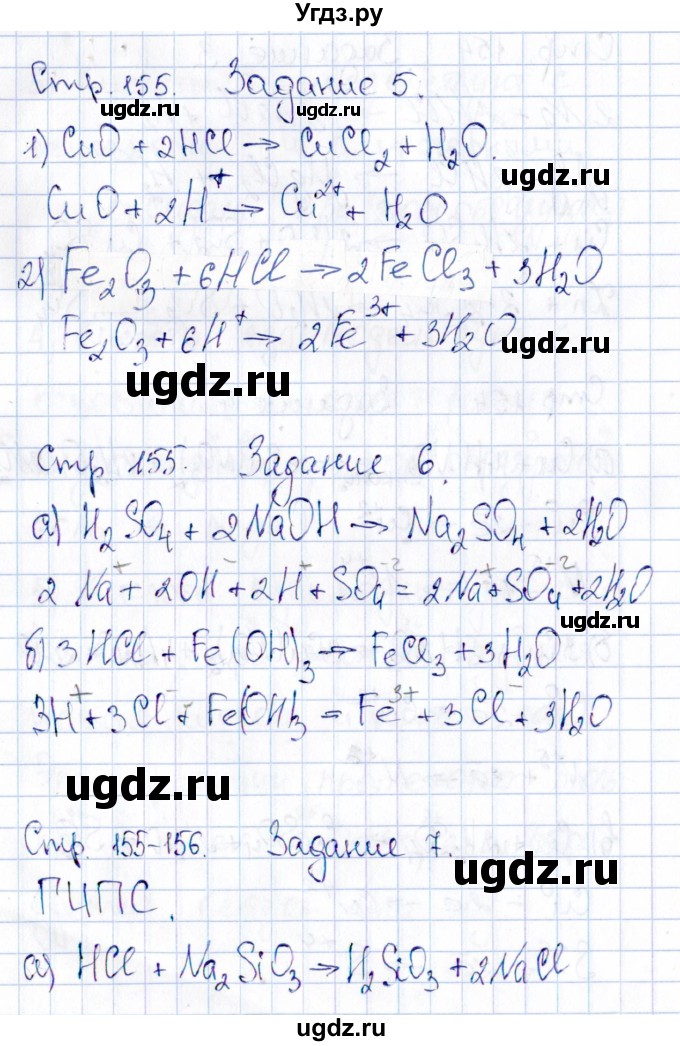 Угдз.ру
Стр. 155. Задание 5.
ugdz.ru ugdz.ru
1) CuO + 2HCl → CuCl₂ + H₂O.
ugdz.ru
CuO + 2H⁺ → Cu²⁺ + H₂O
2) Fe₂O₃ + 6HCl → 2FeCl₃ + 3H₂O
Fe₂O₃ + 6H⁺ → 2Fe³⁺ + 3H₂O
ugdz.ru ugdz.ru
Стр 155. Задание 6.
а) H₂SO₄ + 2NaOH → Na₂SO₄ + 2H₂O
2Na⁺ + 2OH⁻ + 2H⁺ + SO₄⁻² = 2Na⁺ + SO₄⁻² + 2H₂O
ugdz.ru
б) 3HCl + Fe(OH)₃ → FeCl₃ + 3H₂O
3H⁺ + 3Cl⁻ + Fe(OH)₃ = Fe³⁺ + 3Cl⁻ + 3H₂O
ugdz.ru
Стр. 155-156. Задание 7.
ugdz.ru
ПЧПС.
ugdz.ru
а) HCl + Na₂SiO₃ → H₂SiO₃ + 2NaCl
ugdz.ru